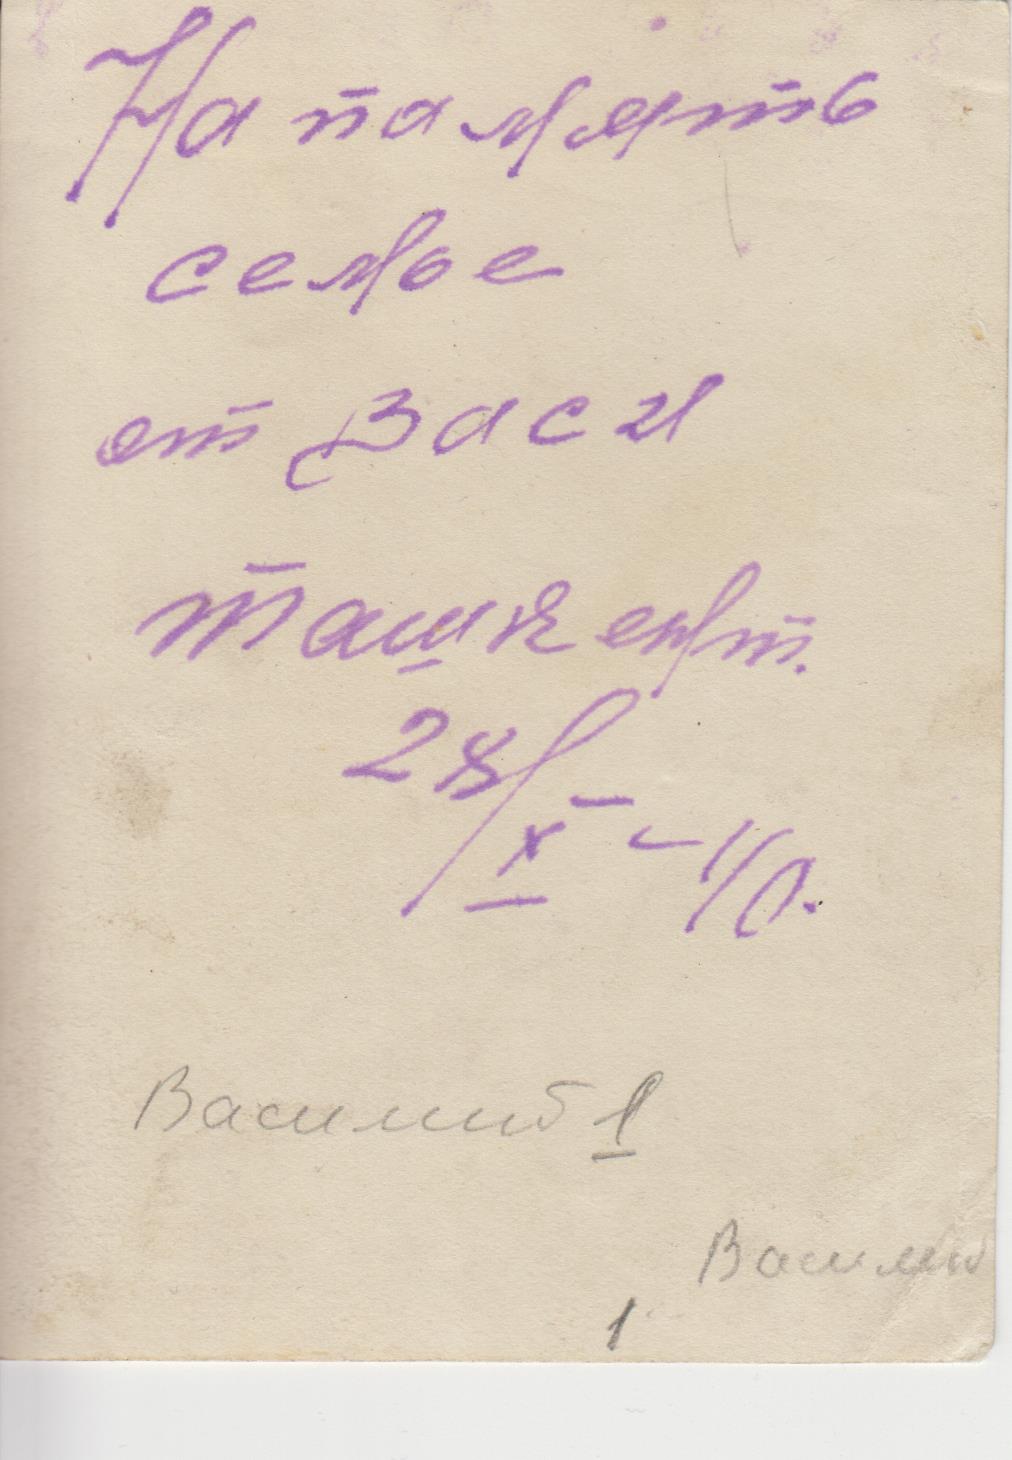 На память
семье
от Васи
Ташкент.
28/X - 40.
Василий 1
Василий
1